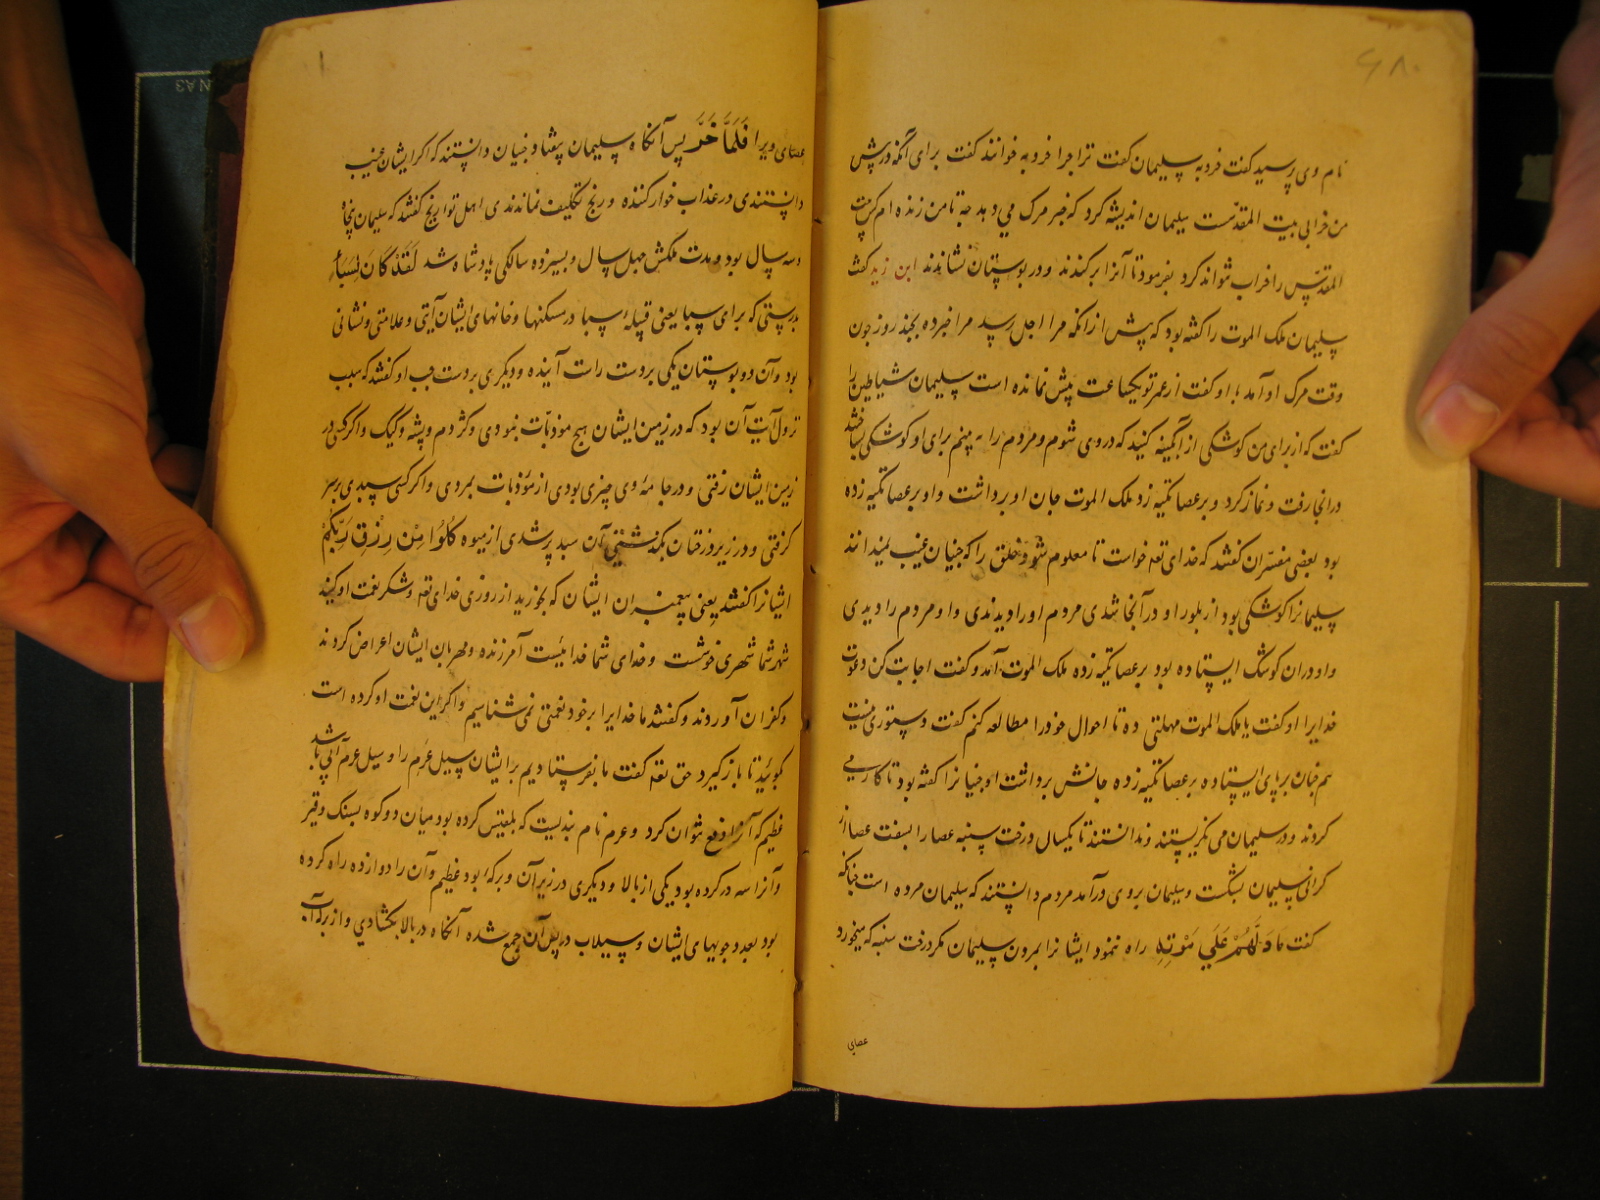 ۶۸۰
نام وی پرسید کفت خروبه سلیمان کفت ترا چرا خروبه خوانند کفت برای آنکه درپیش
من خرابی بیت المقدست سلیمان اندیشه کرد که خبر مرک می دهد چه تا من زنده ام کس بیت
المقدس را خراب نتواند کرد بفرمود تا آنرا برکندند و در بوستان نشاندند ابن زید کفت
سلیمان ملک الموت را کفته بود که پیش از آنکه مرا اجل رسد مرا خبر ده بچند روز چون
وقت مرک او آمد با او کفت از عمر تو یکساعت بیش نمانده است سلیمان شیاطین را
کفت که از برای من کوشکی از آبکینه کنید که در وی شوم و مردم را به بینم برای او کوشکی بساختند
در انجا رفت و نماز کرد و بر عصا تکیه زد ملک الموت جان او برداشت و او بر عصا تکیه زده
بود بعضی مفسران کفتند که خدای تعه خواست تا معلوم شود خلق را که جنیان غیب نمیدانند
سلیمانرا کوشکی بود از بلور او در آنجا شدی مردم او را دیدندی و او مردم را دیدی
و او دران کوشک ایستاده بود بر عصا تکیه زده ملک الموت آمد و کفت اجابت کن دعوت
خدایرا او کفت یا ملک الموت مهلتی ده تا احوال خود را مطالعه کنم کفت دستوری نیست
هم چنان بر پای ایستاده بر عصا تکیه زده جانش برداشت او جنیانرا کفته بود تا کار می
کردند و در سلیمان می نکریستند و ندانستند تا یکسال درخت سنبه عصا را بسفت عصا از
کرانی سلیمان بشکست و سلیمان بروی درآمد مردم دانستند که سلیمان مرده است چنانکه
کفت ما دَلَّهُمْ عَلَی مَوْتِهِ راه ننمود ایشانرا بمردن سلیمان مکر درخت سنبه که میخورد
عصای
۱
عصای ویرا فَلَمَّا خَرَّ پس آنکاه سلیمان بیفتاد و جنیان دانستند که اکر ایشان غیب
دانستندی در عذاب خوار کننده و رنج تکلیف نماندندی اهل تواریخ کفتند که سلیمان پنجاه
و سه سال بود و مدت ملکش چهل سال و بسیزده سالکی پادشاه شد لَقَدْ کَانَ لِسَبَاءٍ
بدرستی که برای سبا یعنی قبیلهٔ سبا در مسکنها و خانهای ایشان آیتی و علامتی و نشانی
بود و آن دو بوستان یکی بر دست راست آینده و دیکری بر دست چپ او کفتند که سبب
نزول آیت آن بود که در زمین ایشان هیچ موذیات نبودی و کژدم و پشه و کیک و اکر کسی در
زمین ایشان رفتی و در جامهٔ وی چیزی بودی از موذیات بمردی و اکر کسی سبدی بر سر
کرفتی و در زیر درختان بکذشتی آن سبد پر شدی از میوه کُلُوا مِنْ رِزْقِ رَبِّکُمْ
ایشانرا کفتند یعنی پیغمبران ایشان که بخورید از روزی خدای تعه و شکر نعمت او کنید
شهر شما شهری خوشست و خدای شما خدائیست آمرزنده و مهربان ایشان اعراض کردند
و کفران آوردند و کفتند ما خدایرا بر خود نعمتی نمی شناسیم و اکر این نعمت او کرده است
کوئید تا باز کیرد حق تعه کفت ما بفرستادیم بر ایشان سیل عرم را و سیل عرم آبی باشد
عظیم که آنرا دفع نتوان کرد و عرم نام بندیست که بلقیس کرده بود میان دو کوه بسنک و قیر
و آنرا سه در کرده بود یکی از بالا و دیکری در زیر آن و برکهٔ بود عظیم و آن را دوازده راه کرده
بود بعدد جویهای ایشان و سیلاب در پس آن جمع شده آنکاه در بالا بکشادی و از برکه آب